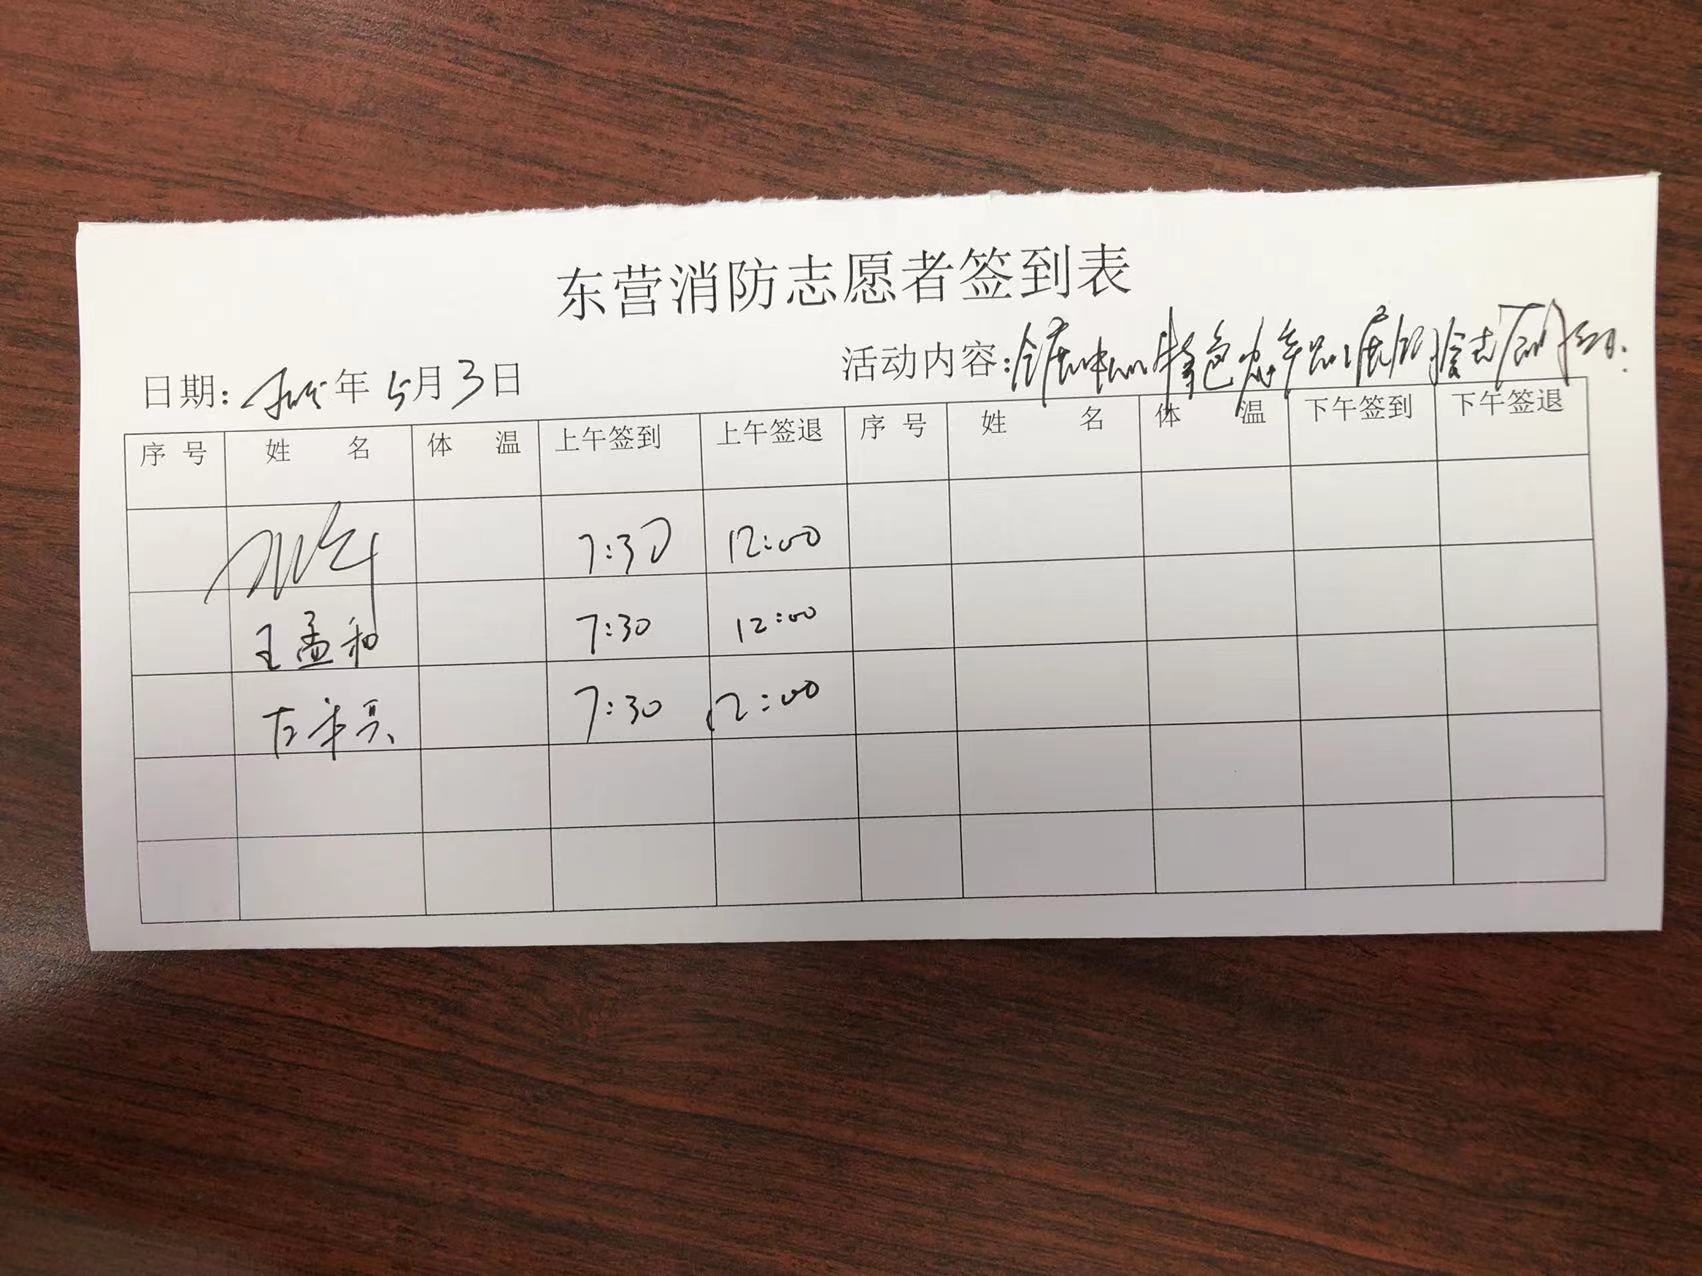 东营消防志愿者签到表
日期: 年 5月3日
活动内容: 特色
序号 姓名 体温 上午签到 上午签退 序号 姓名 体温 下午签到 下午签退
7:30 12:00
王孟和 7:30 12:00
7:30 12:00